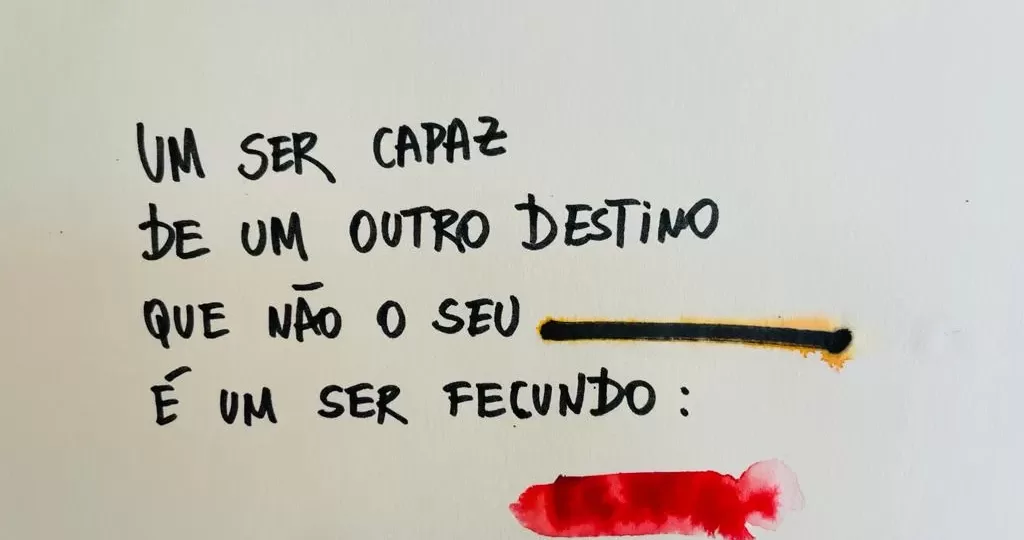 UM SER CAPAZ
DE UM OUTRO DESTINO
QUE NÃO O SEU
É UM SER FECUNDO: